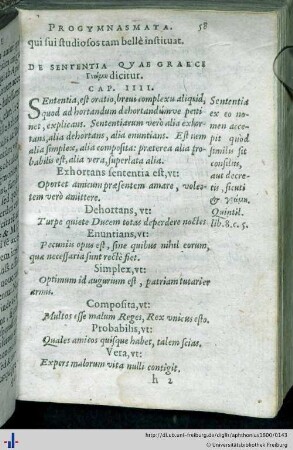 PROGYMNASMATA. 58
qui sui studiosos tam bellè instituat.
DE SENTENTIA QVAE GRAECE
Γνώμη dicitur.
CAP. IIII.
SEntentia, est oratio, breui complexu aliquid,
quod ad hortandum dehortandumve perti
net, explicans. Sententiarum verò alia exhor-
tans, alia dehortans, alia enuntians. Est item
alia simplex, alia composita: præterea alia pro
babilis est, alia vera, superlata alia.
Exhortans sententia est, vt:
Oportet amicum præsentem amare, volen-
tem verò amittere.
Dehortans, vt:
Turpe quiete Ducem totas deperdere noctes
Enuntians, vt:
Pecuniis opus est, sine quibus nihil eorum,
quæ necessaria sunt rectè fiet.
Simplex, vt:
Optimum id augurium est, patriam tutarier
armis.
Composita, vt:
Multos esse malum Reges, Rex vnicus esto.
Probabilis, vt:
Quales amicos quisque habet, talem scias.
Vera, vt:
Expers malorum vita nulli contigit.
h 2
Sententia
ex eo no-
men acce-
pit quod
similis sit
consiliis,
aut decre-
tis, sicuti
& γνώμη.
Quintil.
lib. 8. c. 5.
http://dl.ub.uni-freiburg.de/diglit/aphthonius1600/0143
Universitätsbibliothek Freiburg